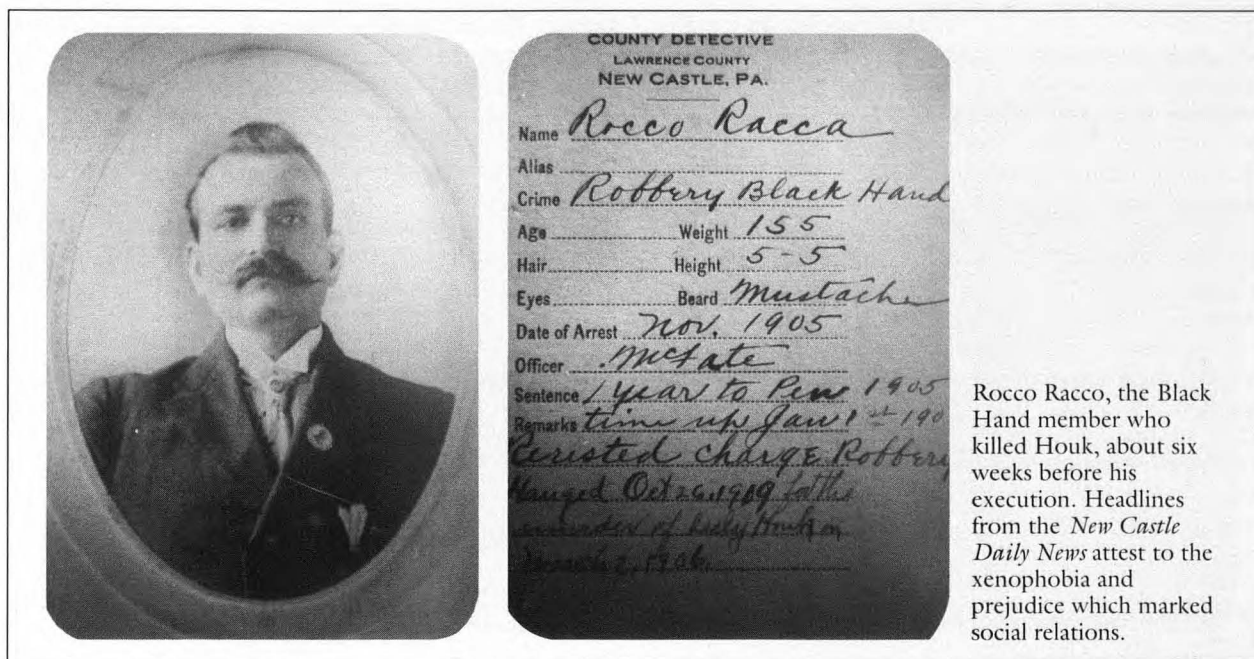 COUNTY DETECTIVE
LAWRENCE COUNTY
NEW CASTLE, PA.
Name Rocco Racca
Alias
Crime Robbery Black Hand
Age Weight 155
Hair Height 5-5
Eyes Beard Mustache
Date of Arrest Nov. 1905
Officer McFate
Sentence 1 year to Pen 1905
Remarks time up Jan 1st 190
charge Robbery
Hanged Oct 26, 1909 for the
murder of Seely Houk on
March 2, 1906.
Rocco Racco, the Black
Hand member who
killed Houk, about six
weeks before his
execution. Headlines
from the New Castle
Daily News attest to the
xenophobia and
prejudice which marked
social relations.